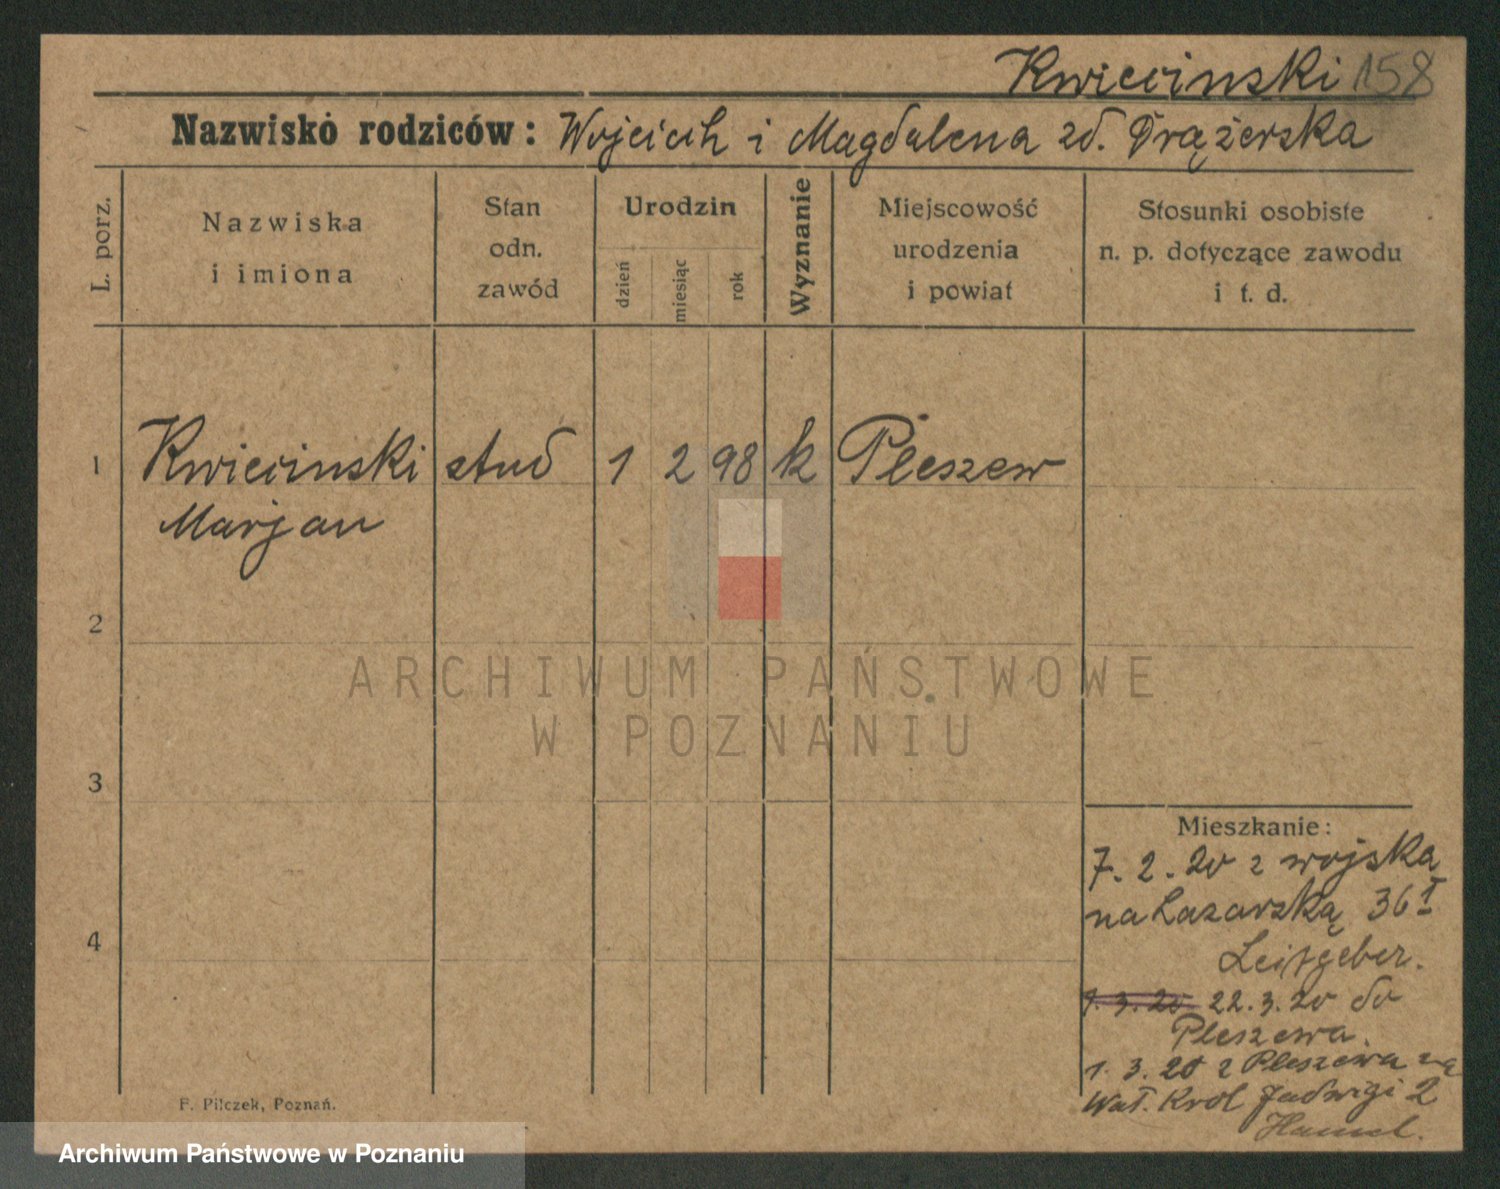 Kwiecinski 158
Nazwisko rodziców: Wojciech i Magdalena zd. Drążerska
L. porz.
Nazwiska
i imiona
Stan
odn.
zawód
Urodzin
dzień
miesiąc
rok
Wyznanie
Miejscowość
urodzenia
i powiat
Stosunki osobiste
n. p. dotyczące zawodu
i t. d.
1 Kwiecinski stud 1 2 98 k Pleszew
Marjan
2
3
4
Mieszkanie:
7. 2. 20 z wojska
na Lazarską 36 I
Leitgeber.
1. 3. 20 22. 3. 20 do
Pleszewa.
1. 3. 20 z Pleszewa na
Wał. Krol Jadwigi 2
F. Pilczek, Poznań.
ARCHIWUM PAŃSTWOWE
W POZNANIU
Archiwum Państwowe w Poznaniu